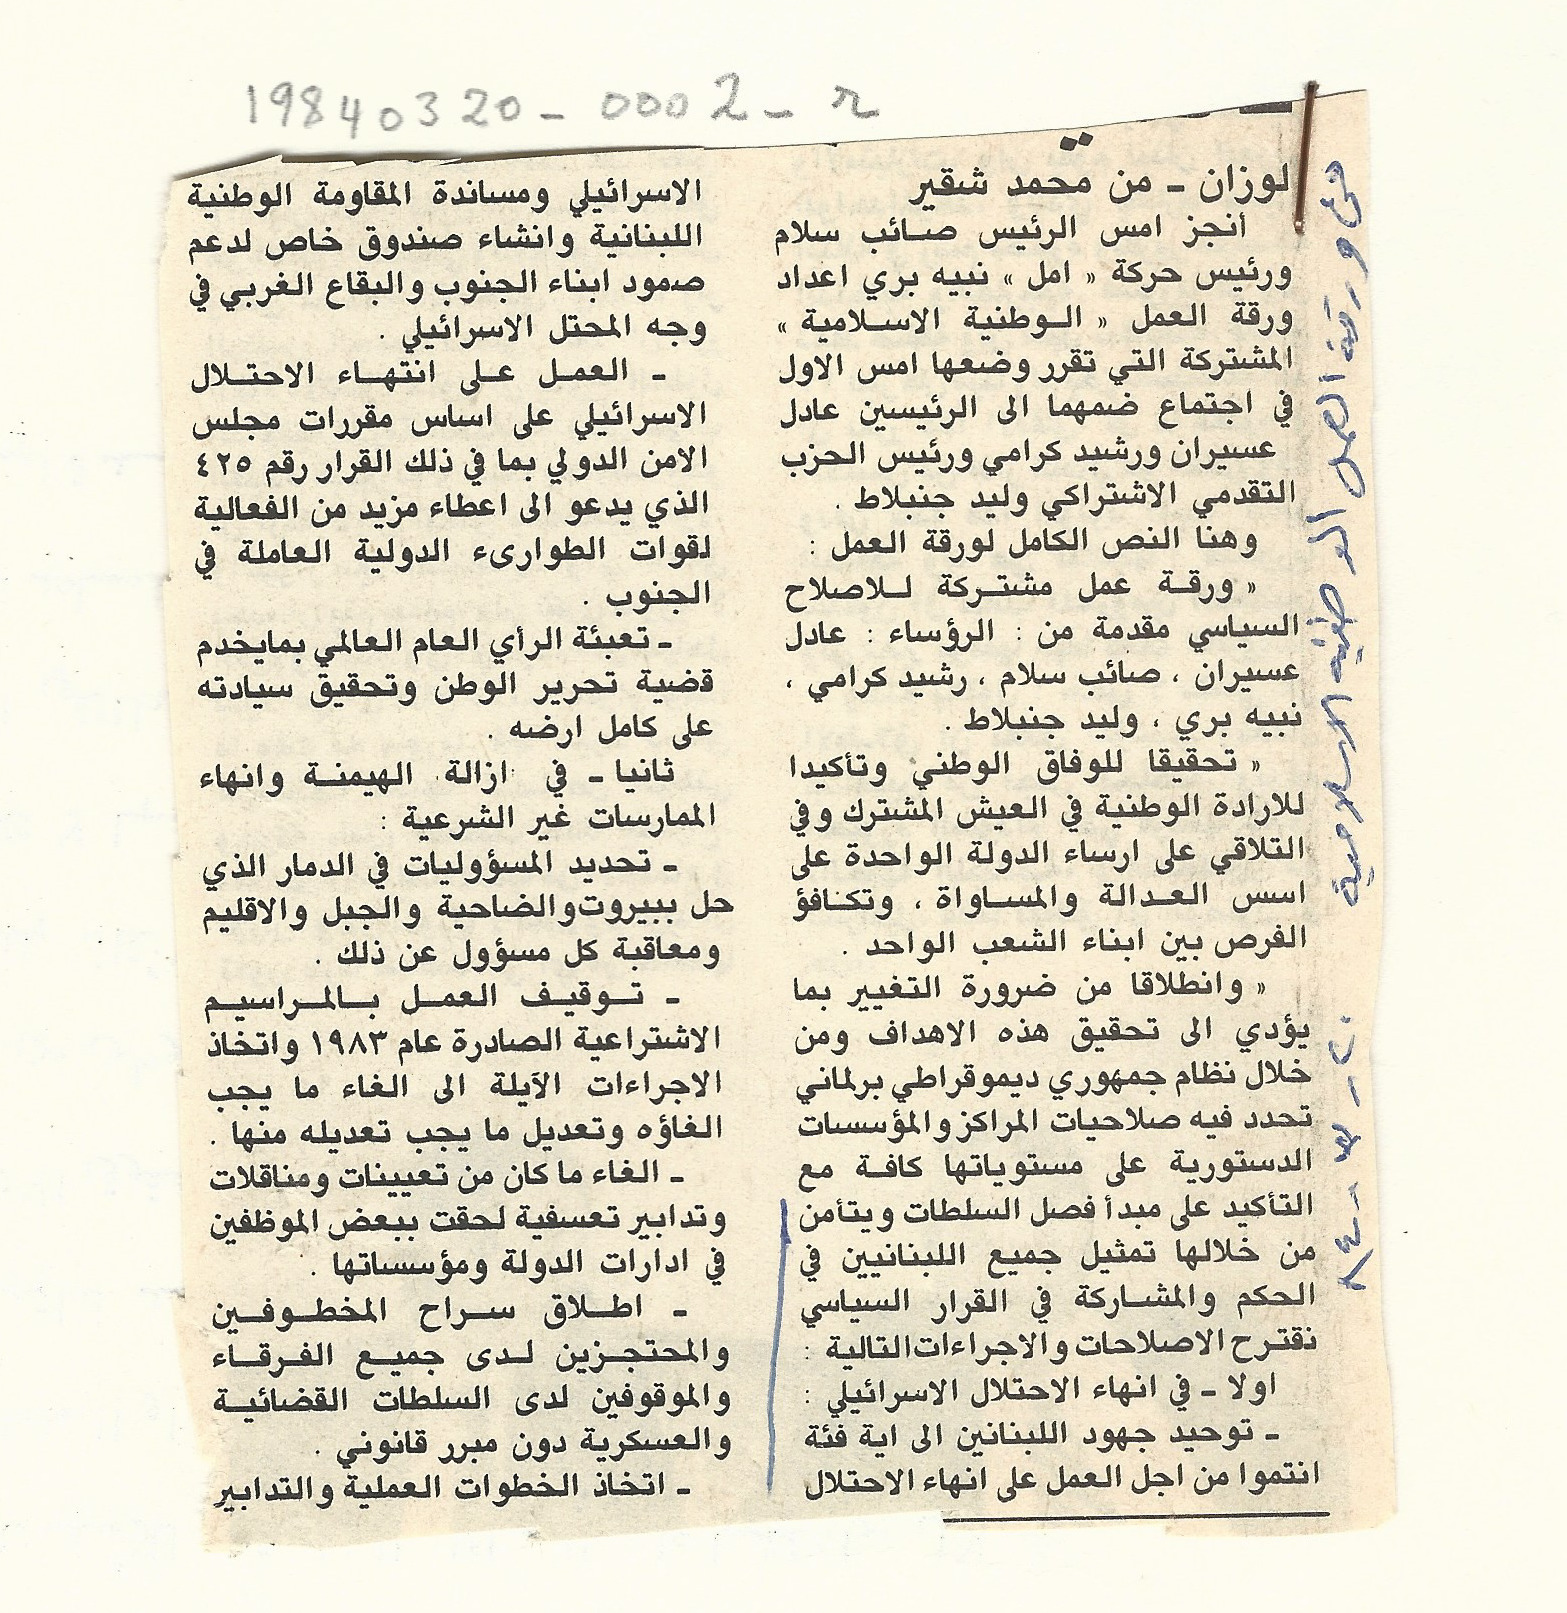 19840320-0002-r
لوزان ـ من محمد شقير
أنجز امس الرئيس صائب سلام
ورئيس حركة « امل » نبيه بري اعداد
ورقة العمل « الوطنية الاسلامية »
المشتركة التي تقرر وضعها امس الاول
في اجتماع ضمهما الى الرئيسين عادل
عسيران ورشيد كرامي ورئيس الحزب
التقدمي الاشتراكي وليد جنبلاط .
وهنا النص الكامل لورقة العمل :
« ورقة عمل مشتركة للاصلاح
السياسي مقدمة من : الرؤساء : عادل
عسيران ، صائب سلام ، رشيد كرامي ،
نبيه بري ، وليد جنبلاط .
« تحقيقا للوفاق الوطني وتأكيدا
للارادة الوطنية في العيش المشترك وفي
التلاقي على ارساء الدولة الواحدة على
اسس العدالة والمساواة ، وتكافؤ
الفرص بين ابناء الشعب الواحد .
« وانطلاقا من ضرورة التغيير بما
يؤدي الى تحقيق هذه الاهداف ومن
خلال نظام جمهوري ديموقراطي برلماني
تحدد فيه صلاحيات المراكز والمؤسسات
الدستورية على مستوياتها كافة مع
التأكيد على مبدأ فصل السلطات ويتأمن
من خلالها تمثيل جميع اللبنانيين في
الحكم والمشاركة في القرار السياسي
نقترح الاصلاحات والاجراءات التالية :
اولا ـ في انهاء الاحتلال الاسرائيلي :
ـ توحيد جهود اللبنانين الى اية فئة
انتموا من اجل العمل على انهاء الاحتلال
الاسرائيلي ومساندة المقاومة الوطنية
اللبنانية وانشاء صندوق خاص لدعم
صمود ابناء الجنوب والبقاع الغربي في
وجه المحتل الاسرائيلي .
ـ العمل على انتهاء الاحتلال
الاسرائيلي على اساس مقررات مجلس
الامن الدولي بما في ذلك القرار رقم ٤٢٥
الذي يدعو الى اعطاء مزيد من الفعالية
لقوات الطوارىء الدولية العاملة في
الجنوب .
ـ تعبئة الرأي العام العالمي بمايخدم
قضية تحرير الوطن وتحقيق سيادته
على كامل ارضه .
ثانيا ـ في ازالة الهيمنة وانهاء
الممارسات غير الشرعية :
ـ تحديد المسؤوليات في الدمار الذي
حل ببيروت والضاحية والجبل والاقليم
ومعاقبة كل مسؤول عن ذلك .
ـ توقيف العمل بالمراسيم
الاشتراعية الصادرة عام ١٩٨٣ واتخاذ
الاجراءات الآيلة الى الغاء ما يجب
الغاؤه وتعديل ما يجب تعديله منها .
ـ الغاء ما كان من تعيينات ومناقلات
وتدابير تعسفية لحقت ببعض الموظفين
في ادارات الدولة ومؤسساتها .
ـ اطلاق سراح المخطوفين
والمحتجزين لدى جميع الفرقاء
والموقوفين لدى السلطات القضائية
والعسكرية دون مبرر قانوني .
ـ اتخاذ الخطوات العملية والتدابير
ورقة العمل الوطنيه الاسلامية
٢٠ ـ ٣ ـ ٨٤